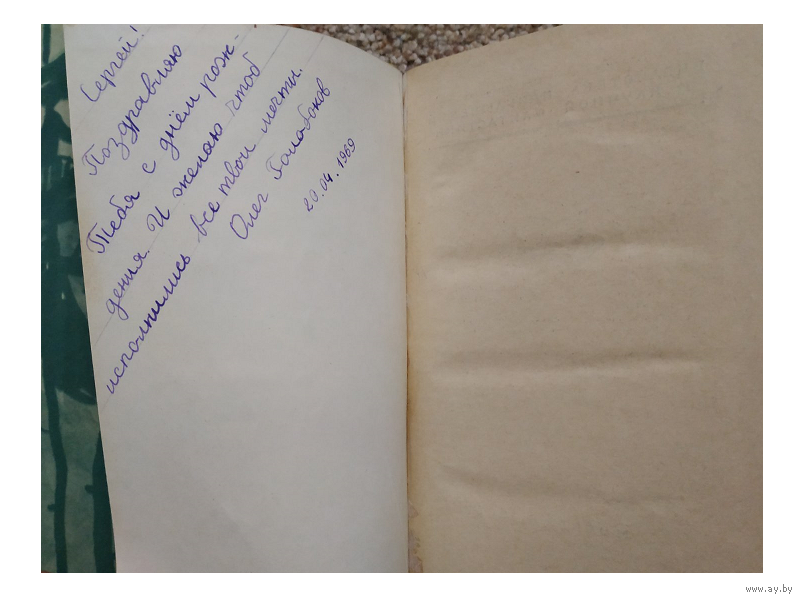 Сергей!
Поздравляю
Тебя с днём рож-
дения. И желаю чтоб
исполнились все твои мечты.
Олег Голобоков
20.04.1969
www.ay.by